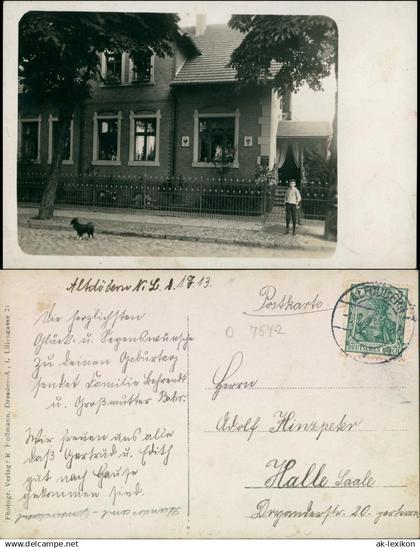 Altdöbern N. L. 1.7.13.
Postkarte
O 7542
ALTDÖBERN
DEUTSCHES REICH
Die herzlichsten
Glück u. Segenswünsche
zu deinen Geburtag
sendet Familie Behrendt
u. Großmutter
Wir freuen uns alle
daß Gertrud u. Edith
gut nach Hause
gekommen sind.
Herrn
Adolf Hinzpeter
Halle Saale
Dryanderstr. 20.
Photogr. Verlag: R Poßmann, Dresden-A., l. Liliengasse 21
© ak-ansichtskarten.de
www.ak-ansichtskarten.de
ak-lexikon